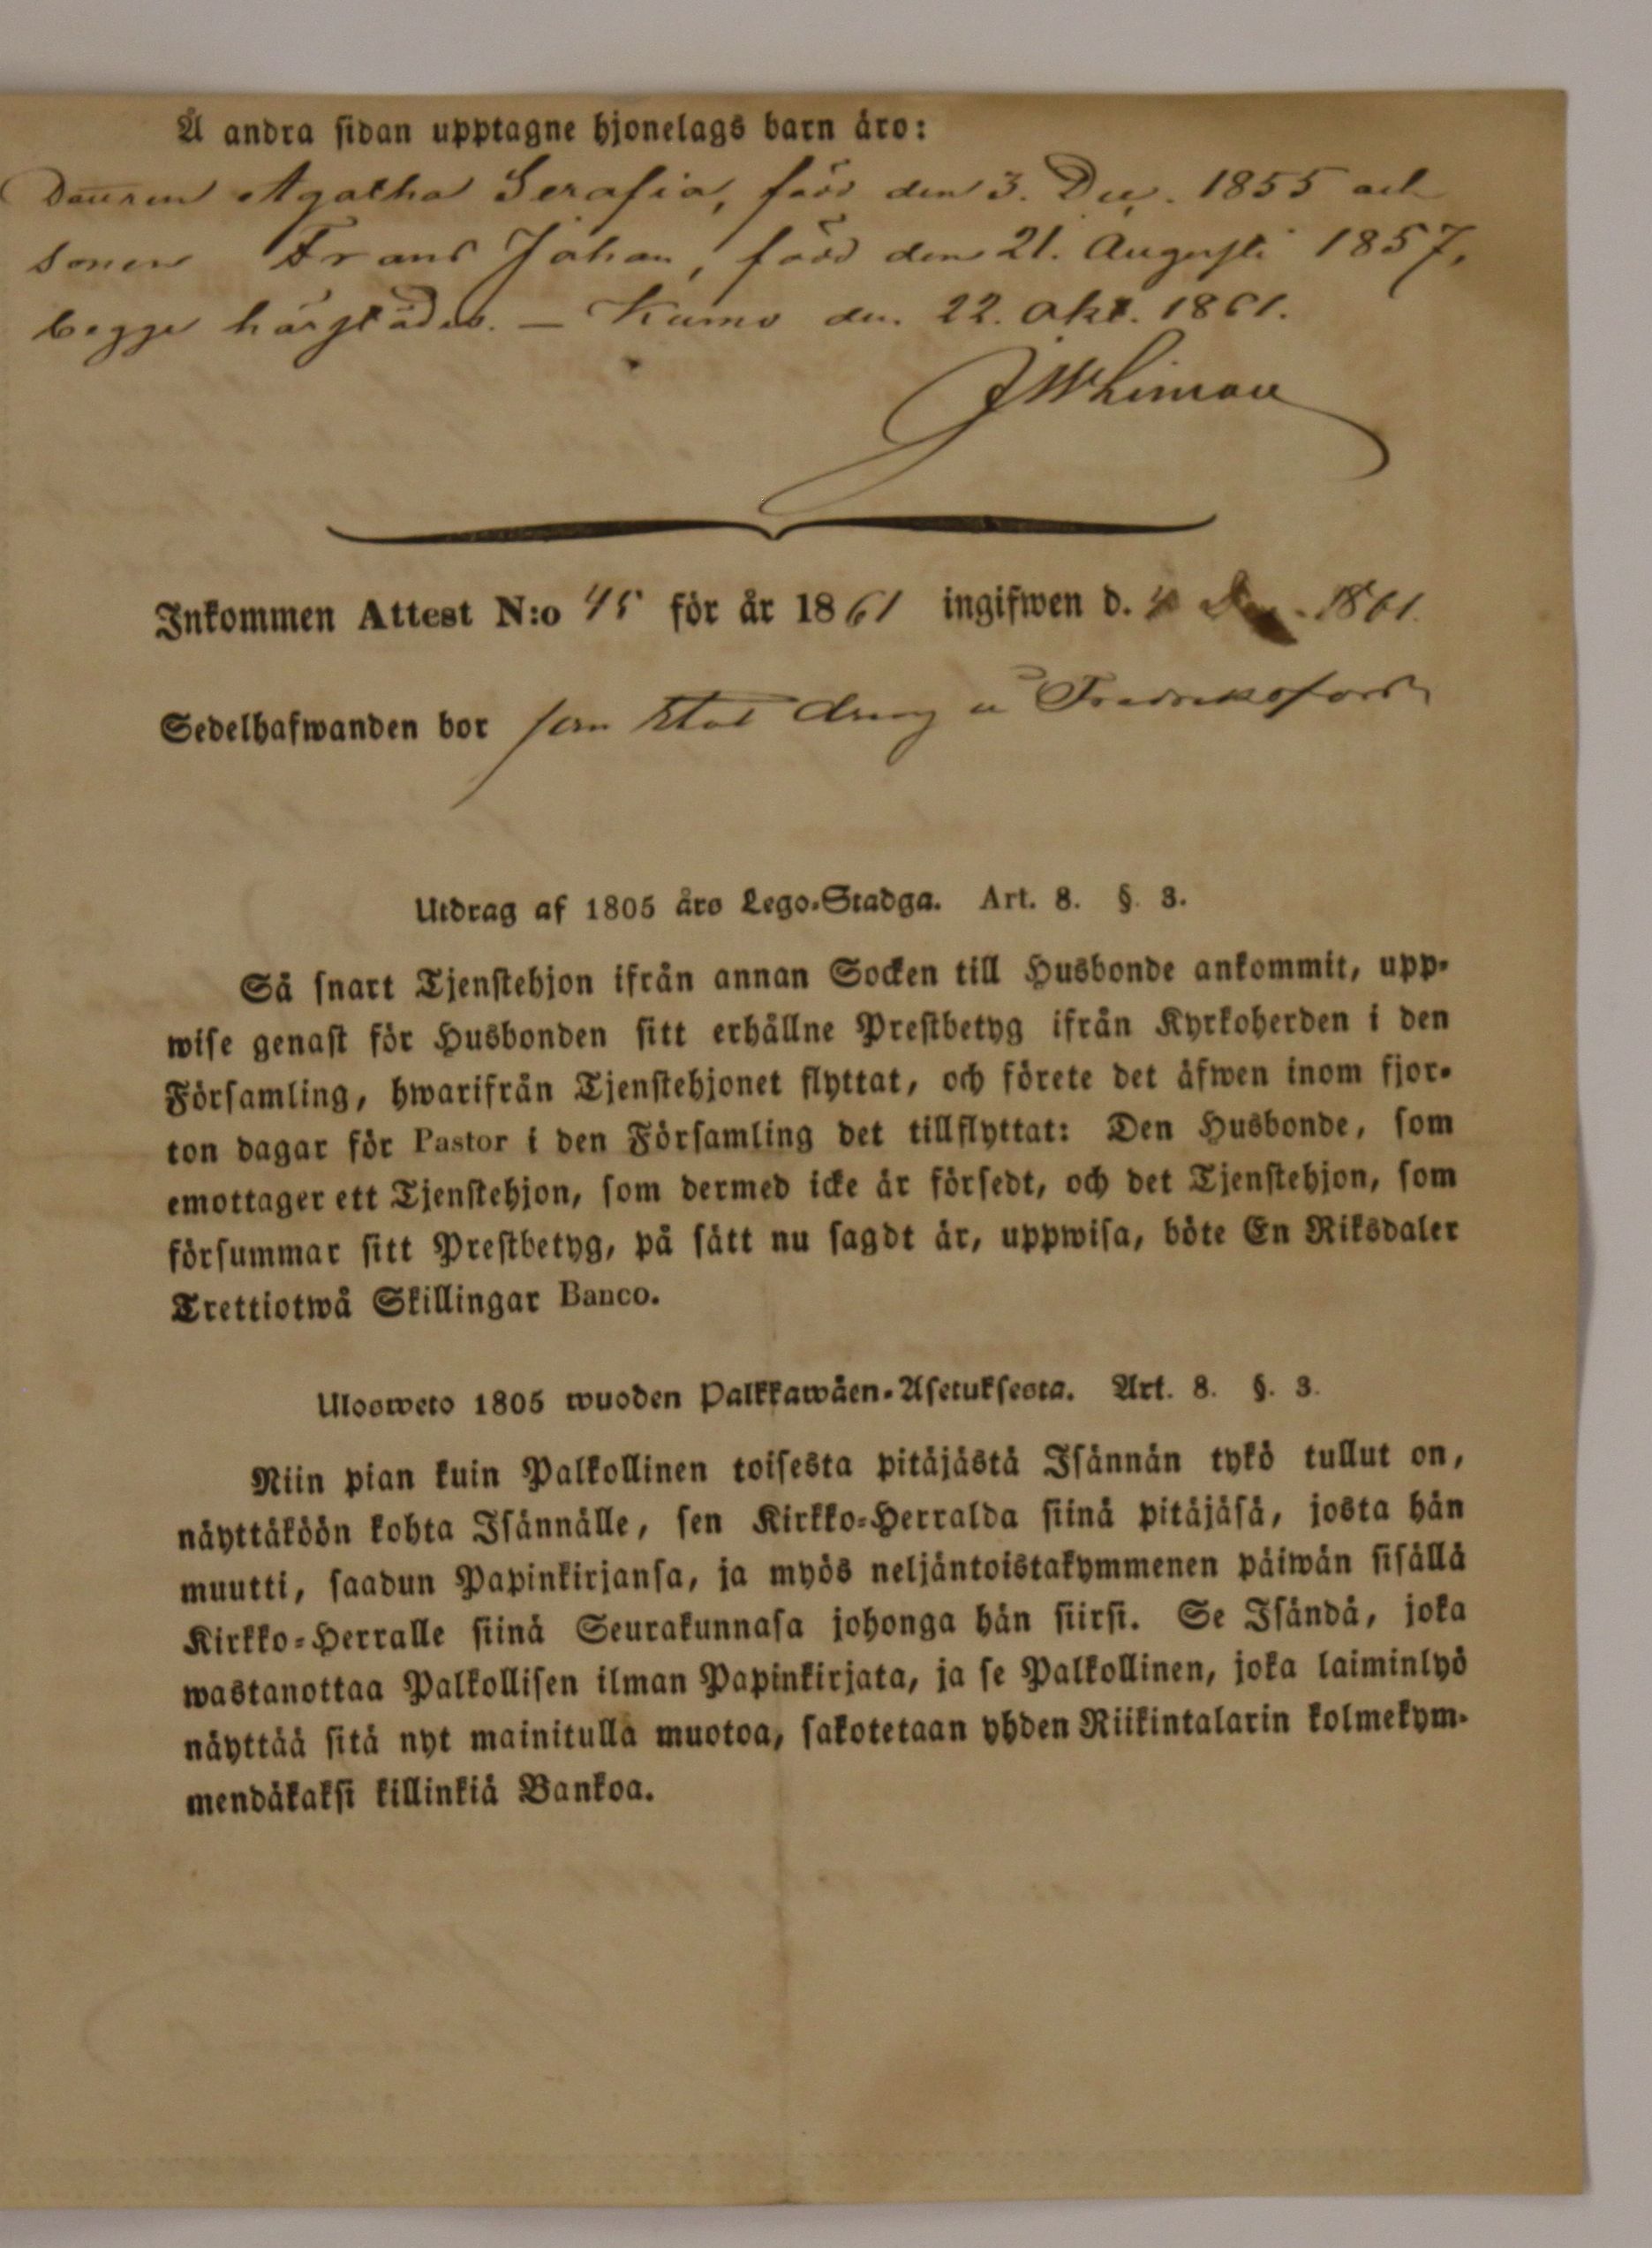 Å andra sidan upptagne hjonelags barn äro:
Dottren Agatha Serafia, född den 3. Dec. 1855 och
sonen Frans Johan, född den 21. Augusti 1857,
begge härstädes. — Kumo den 22. Okt. 1861.
Inkommen Attest N:o 45 för år 1861 ingifwen d. Dec. 1861.
Sedelhafwanden bor som Stat dräng å Fredriksfors
Utdrag af 1805 års Lego-Stadga. Art. 8. §. 3.
Så snart Tjenstehjon ifrån annan Socken till Husbonde ankommit, upp-
wise genast för Husbonden sitt erhållne Prestbetyg ifrån Kyrkoherden i den
Församling, hwarifrån Tjenstehjonet flyttat, och förete det äfwen inom fjor-
ton dagar för Pastor i den Församling det tillflyttat: Den Husbonde, som
emottager ett Tjenstehjon, som dermed icke är försedt, och det Tjenstehjon, som
försummar sitt Prestbetyg, på sätt nu sagdt är, uppwisa, böte En Riksdaler
Trettiotwå Skillingar Banco.
Ulosweto 1805 wuoden Palkkawäen-Asetuksesta. Art. 8. §. 3.
Niin pian kuin Palkollinen toisesta pitäjästä Isännän tykö tullut on,
näyttäköön kohta Isännälle, sen Kirkko-Herralda siinä pitäjäsä, josta hän
muutti, saadun Papinkirjansa, ja myös neljäntoistakymmenen päiwän sisällä
Kirkko-Herralle siinä Seurakunnasa johonga hän siirsi. Se Isändä, joka
wastanottaa Palkollisen ilman Papinkirjata, ja se Palkollinen, joka laiminlyö
näyttää sitä nyt mainitulla muotoa, sakotetaan yhden Riikintalarin kolmekym-
mendäkaksi killinkiä Bankoa.